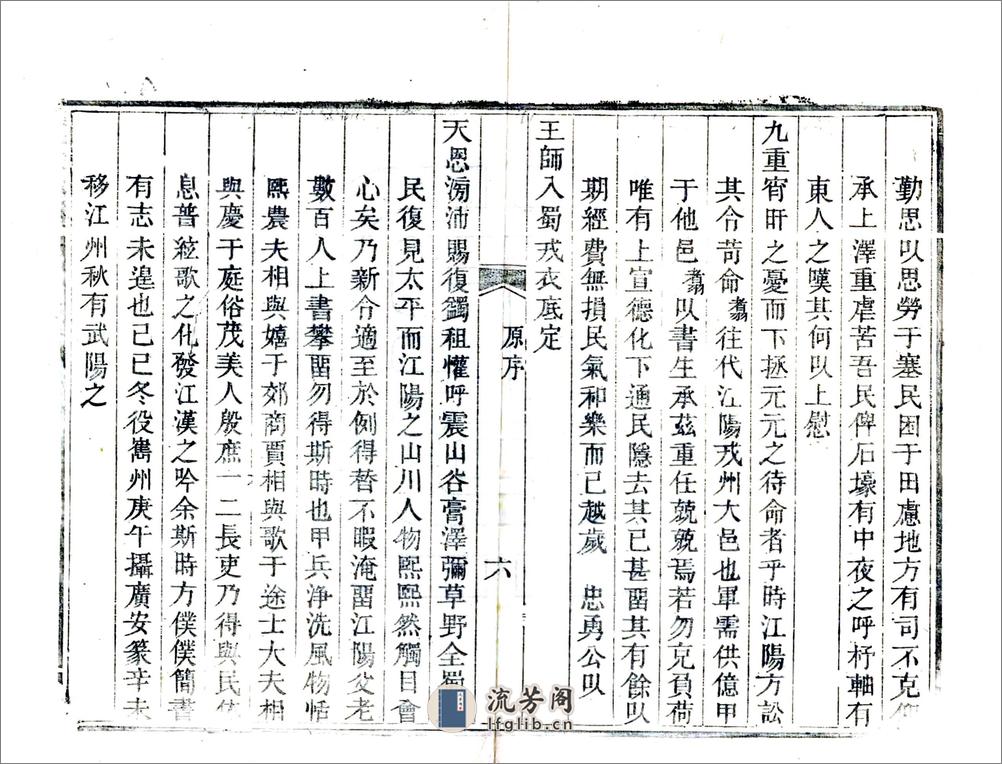 勤思以思勞于塞民困于田慮地方有司不克
承上澤重虐苦吾民俾石壕有中夜之呼杼軸有
東人之嘆其何以上慰
九重宵旰之憂而下拯元元之待命者乎時江陽方訟
其令苛命翥往代江陽戎州大邑也軍需供億甲
于他邑翥以書生承茲重任兢兢焉若勿克負荷
唯有上宣德化下通民隱去其已甚畱其有餘以
期經費無損民氣和樂而已越歲 忠勇公以
王師入蜀戎衣底定
原序
六
天恩滂沛賜復蠲租懽呼震山谷膏澤彌草野全蜀
民復見太平而江陽之山川人物熙熙然觸目會
心矣乃新令適至於例得替不暇淹畱江陽父老
數百人上書攀畱勿得斯時也甲兵净洗風物恬
熙農夫相與嬉于郊商賈相與歌于途士大夫相
與慶于庭俗茂美人殷庶一二長吏乃得與民休
息普絃歌之化發江漢之吟余斯時方僕僕簡書
有志未遑也己巳冬役嶲州庚午攝廣安篆辛未
移江州秋有武陽之
流芳阁
lfglib.cn